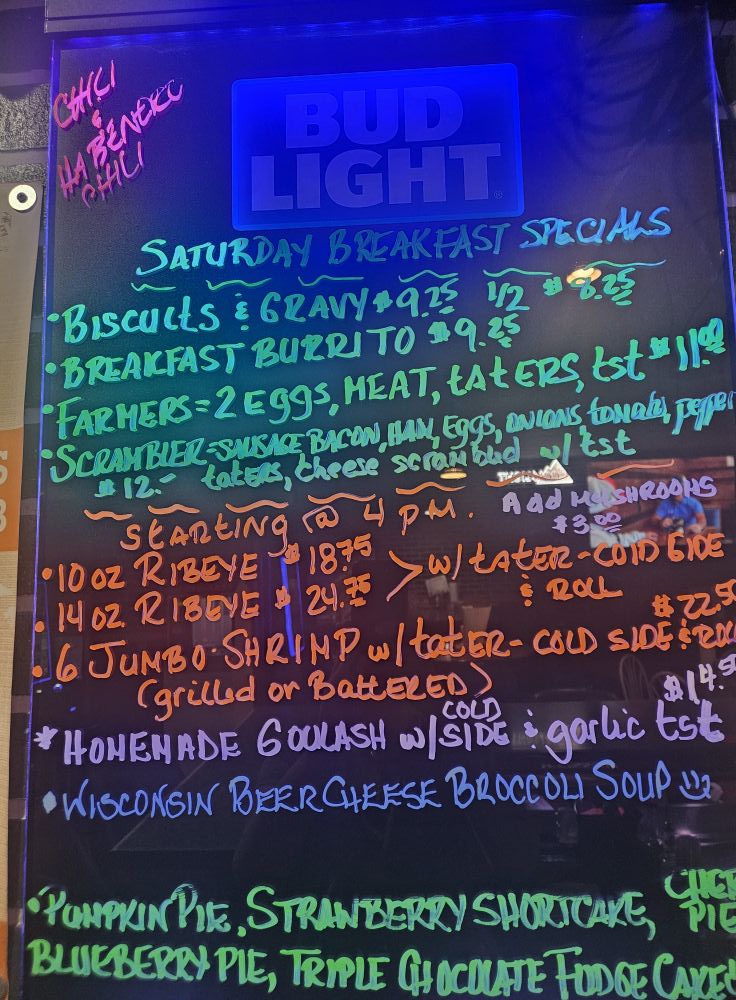 CHILI
&
HABENERO
CHILI
BUD
LIGHT
SATURDAY BREAKFAST SPECIALS
• BISCUITS & GRAVY $9.25 1/2 $8.25
• BREAKFAST BURRITO $9.25
• FARMERS = 2 Eggs, MEAT, tATERS, tst $11.00
• SCRAMBLER - SAUSAGE BACON, HAM, Eggs, ONIONS tomato, pepper
$12.- taters, cheese scrambled w/ tst
STARTING @ 4 PM.
Add MUSHROOMS
$3.00
• 10 oz RIBEYE $18.75 > w/ tATER - COLD SIDE
• 14 oz. RIBEYE $24.75 & ROLL
$22.50
• 6 JUMBO SHRIMP w/ tater - COLD SIDE & ROLL
(grilled or BattERED)
$14.50
* HOMEMADE GOULASH w/ COLD SIDE & garlic tst
• WISCONSIN BEER CHEESE BROCCOLI SOUP
• PUMPKIN PIE, STRAWBERRY SHORTCAKE,
PIE
BLUEBERRY PIE, TRIPLE CHOCOLATE FUDGE CAKE